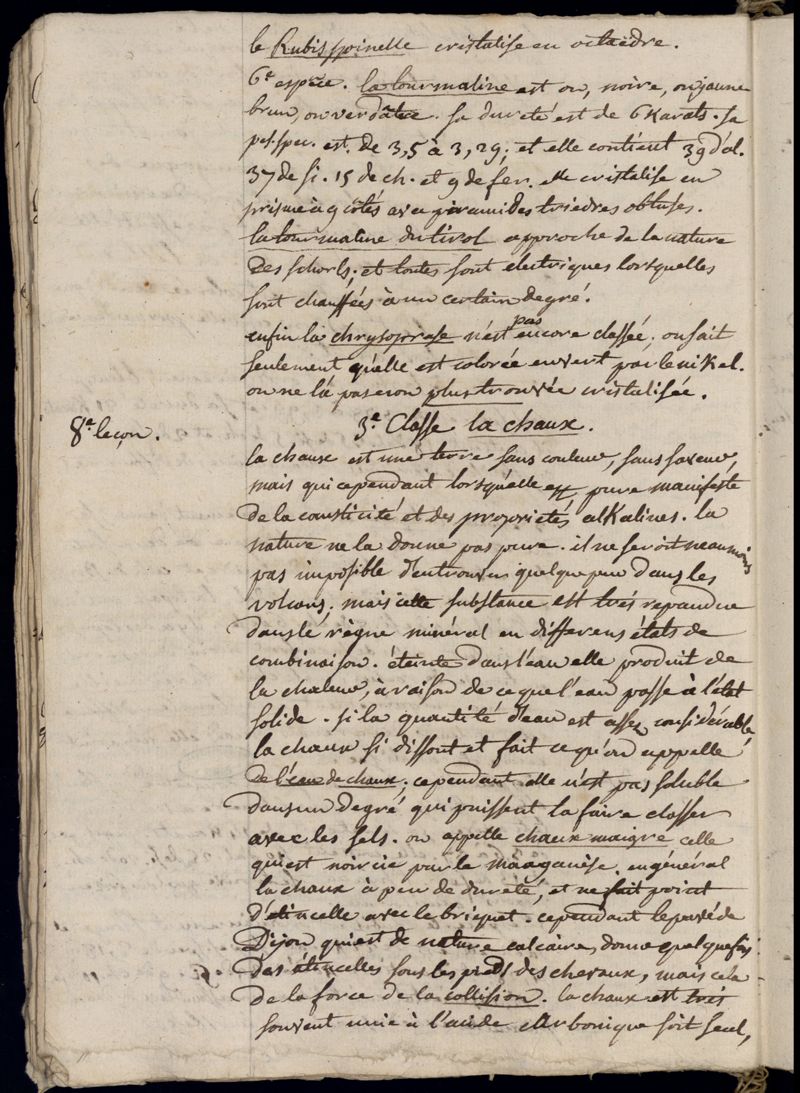 le Rubis spinelle cristalise en octaëdre.
6e espèce. la tourmaline est ou, noire, ou jaune
brun, ou verdâtre. sa dureté est de 6 Karats. sa
pes. spec. est. de 3,5 à 3,29; et elle contient 39 d'al.
37 de si. 15 de ch. et 9 de fer. elle cristalise en
prisme à 9 côtés avec piramides triedres obtuses.
la tourmaline du tirol approche de la nature
des schorls; et toutes sont electriques lorsquelles
sont chauffées à un certain degré.
enfin la chrysoprase n'est pas encore classée; on sait
seulement qu'elle est colorée en vert par le nikel.
on ne l'a pas non plus trouvée cristalisée.
3e Classe la chaux.
8e leçon.
la chaux est une terre sans couleur, sans saveur,
mais qui cependant lorsqu'elle est pure manifeste
de la causticité et des propriétés alkalines. la
nature ne la donne pas pure. il ne seroit neanmoins
pas impossible d'en trouver quelque peu dans les
volcans; mais cette substance est très repandue
dans le règne minéral en differens états de
combinaison. éteinte dans l'eau elle produit de
la chaleur, à raison de ce que l'eau passe à l'état
solide. si la quantité d'eau est assez considérable,
la chaux si dissout et fait ce qu'on appelle
de l'eau de chaux; cependant elle n'est pas soluble
dans un degré qui puissent la faire classer
avec les sels. on appelle chaux maigre celle
qui est noircie par le manganèse. en général
la chaux à peu de dureté, et ne fait point
d'étincelle avec le briquet. cependant le pavé de
Dijon qui est de nature calcaire, donne quelquefois
des étincelles sous les pieds des chevaux, mais cela
de la force de la collision. la chaux est très
souvent unie à l'acide carbonique soit seul,